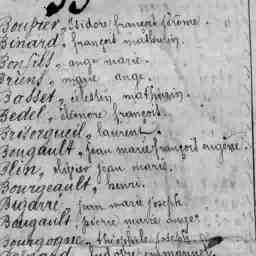 Bouvier, Isidore françois jérôme.
Binard, françois mathurin.
Bonfils, ange marie.
Briens, marie ange.
Basset, célestin mathurin.
Bedel, éléonore françois.
Brisorgueil, laurent.
Bougault, jean marie françois eugène.
Blin, olivier jean marie.
Bourgeault, henri.
Bigarré, jean marie joseph.
Bougault, pierre marie ange
Bourgogne, théophile joseph